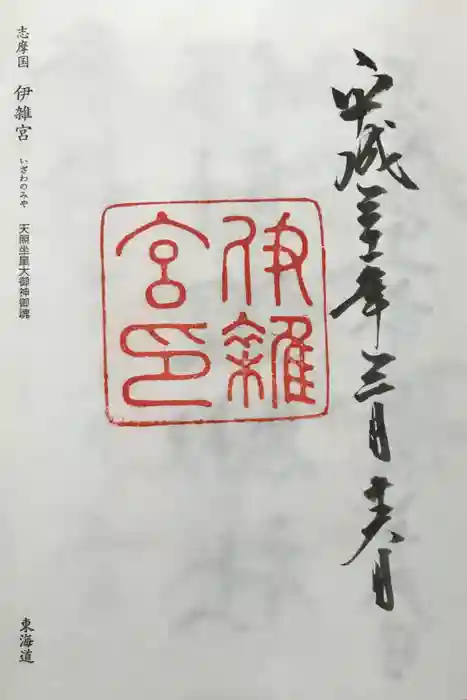 平成三十一年三月十六日
伊雜
宮印
志摩国 伊雜宮 いざわのみや 天照坐皇大御神御魂
東海道